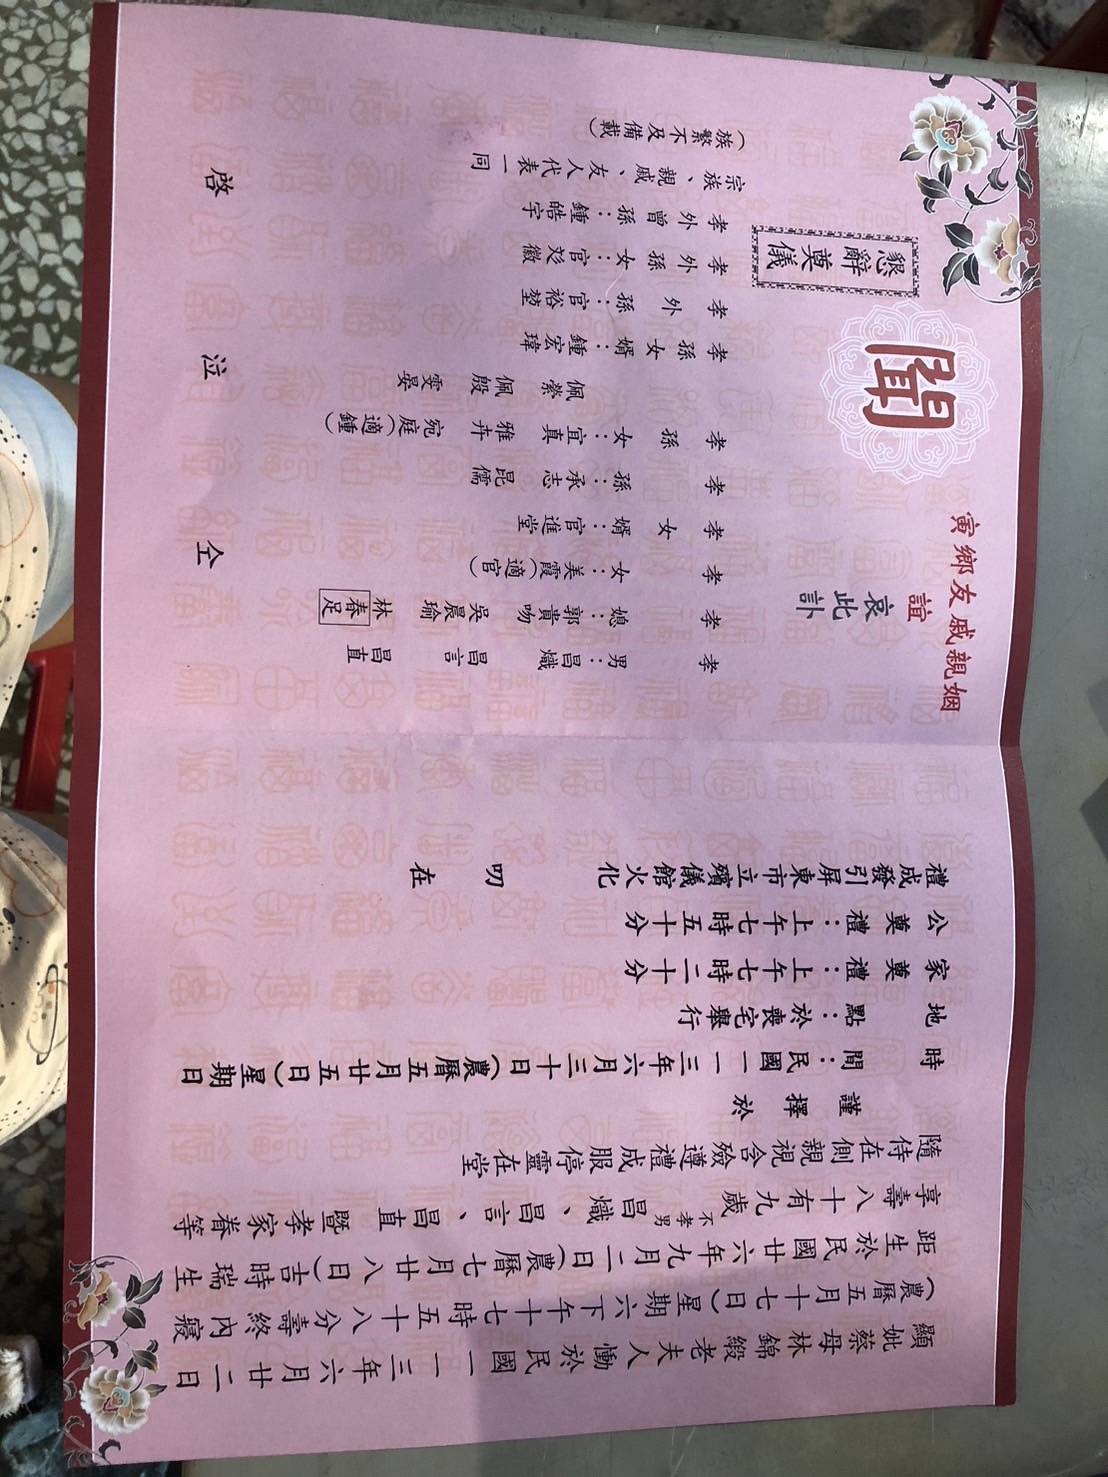 顯妣蔡母林錦緞老夫人慟於民國一一三年六月廿二日
(農曆五月十七日)星期六下午十七時五十八分壽終內寢
距生於民國廿六年九月二日(農曆七月廿八日)吉時瑞生
享壽八十有九歲不孝男昌熾、昌言、昌直暨孝家眷等
隨侍在側親視含殮遵禮成服停靈在堂
謹擇於
時間:民國一一三年六月三十日(農曆五月廿五日)星期日
地點:於喪宅舉行
家奠禮:上午七時二十分
公奠禮:上午七時五十分
禮成發引屏東市立殯儀館火化 叨在
姻親戚友鄉寅
誼
哀此訃
聞
懇辭奠儀
孝男:昌熾 昌言 昌直
孝媳:郭貴吻 吳晨瑜 林春足
孝女:美霞(適官)
孝女婿:官進堂
孝孫:承志 昆儒
孝孫女:宜真 雅卉 宛庭(適鍾)
佩縈 佩殷 雯晏
孝孫女婿:鍾宏瑋
孝外孫:官裕堃
孝外孫女:官苡徽
孝外曾孫:鍾皓宇
宗族、親戚、友人代表一同
(族繁不及備載)
仝 泣 啓